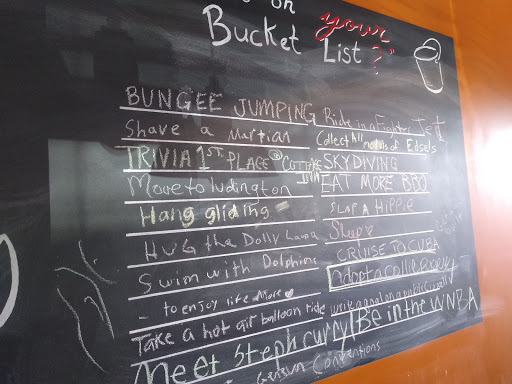 on your
Bucket List?"
BUNGEE JUMPING
Shave a Martian
TRIVIA 1ST PLACE @ COTTAGE INN
Move to ludington
Hang gliding
HUG the Dolly Lama
Swim with Dolphins
to enjoy life more
Take a hot air balloon ride
Meet Steph curry
Ride in a Fighter Jet
Collect All models of Edsels
SKYDIVING
EAT MORE BBQ
SLAP A HIPPIE
Sleep
CRUISE TO CUBA
adopt a collie
write a on a public wall
Be in the WNBA
Geneva Conventions